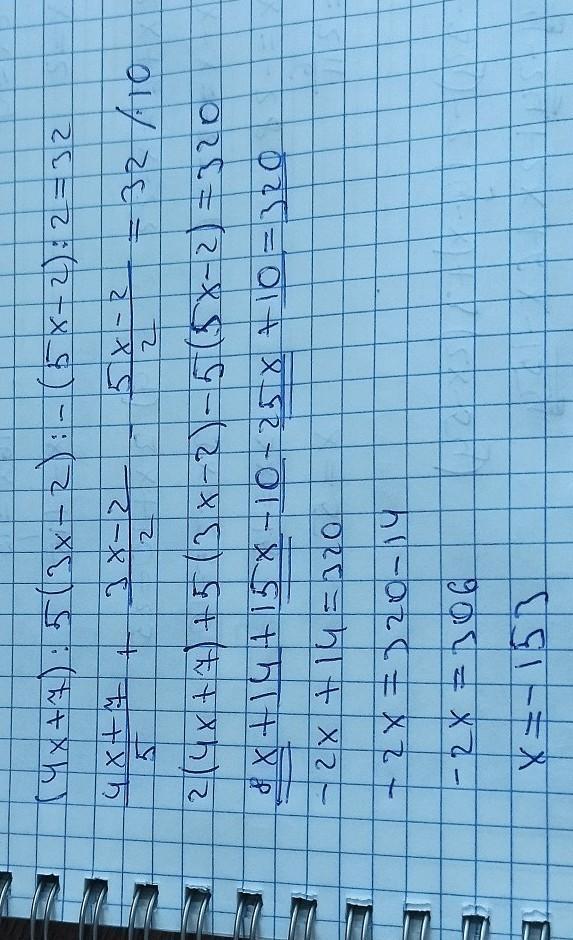 (4x+7):5(3x-2):-(5x-2):2=32
4x+7/5 + 3x-2/2 - 5x-2/2 = 32 /·10
2(4x+7)+5(3x-2)-5(5x-2)=320
8x+14+15x-10-25x+10=320
-2x+14=320
-2x=320-14
-2x=306
x=-153